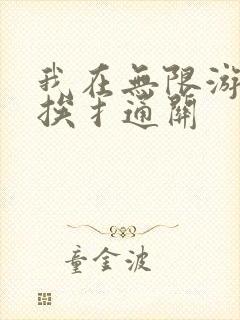 我在無限游
挨扌通關
童金波